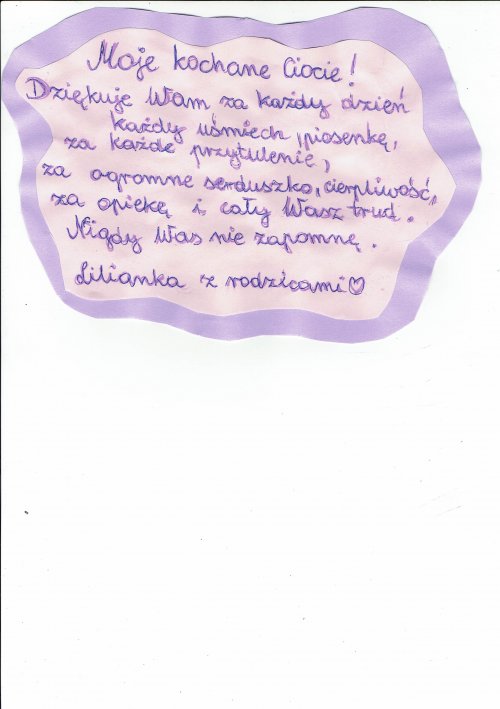 Moje kochane Ciocie!
Dziękuje Wam za każdy dzień
każdy uśmiech, piosenkę,
za każde przytulenie,
za ogromne serduszko, cierpliwość,
za opiekę i cały Wasz trud.
Nigdy Was nie zapomnę.
Lilianka z rodzicami♡